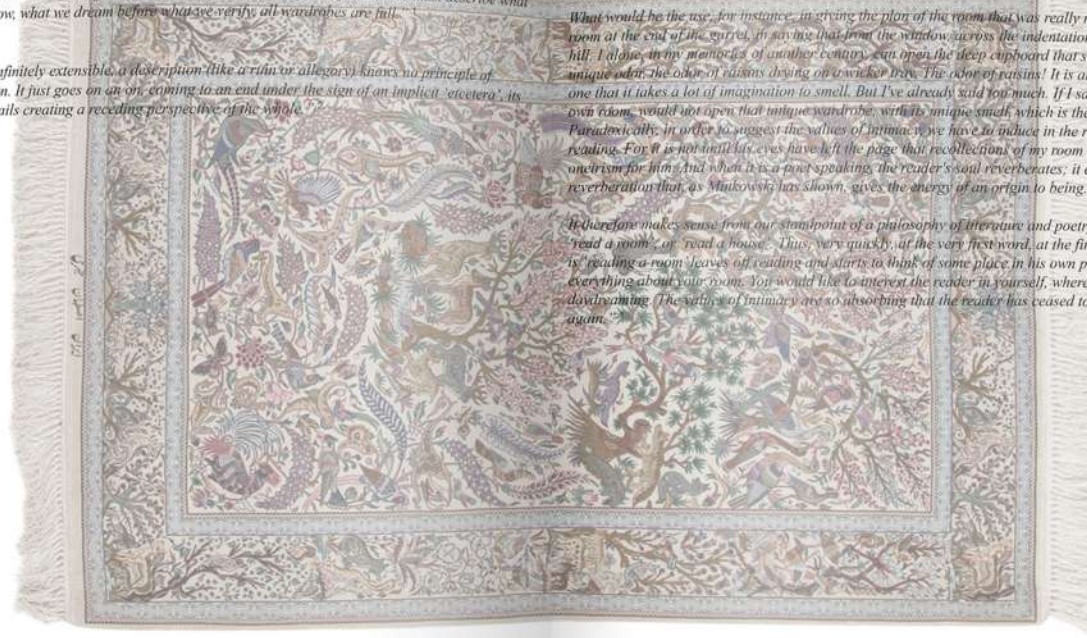 ow, what we dream before what we verify, all wardrobes are full.
nfinitely extensible, a description (like a ruin or allegory) knows no principle of
n. It just goes on an on, coming to an end under the sign of an implicit 'etcetera', its
ails creating a receding perspective of the whole."
What would be the use, for instance, in giving the plan of the room that was really
room at the end of the garret, in saying that from the window, across the indentation
hill. I alone, in my memories of another century, can open the deep cupboard that s
unique odor, the odor of raisins drying on a wicker tray. The odor of raisins! It is
one that it takes a lot of imagination to smell. But I've already said too much. If I sa
own room, would not open that unique wardrobe, with its unique smell, which is the
Paradoxically, in order to suggest the values of intimacy, we have to induce in the
reading. For it is not until his eyes have left the page that recollections of my room
oneirism for him. And when it is a poet speaking, the reader's soul reverberates; it
reverberation that, as Minkowski has shown, gives the energy of an origin to being.
It therefore makes sense from our standpoint of a philosophy of literature and poetr
'read a room', or 'read a house'. Thus, very quickly, at the very first word, at the
is 'reading a room' leaves off reading and starts to think of some place in his own p
everything about your room. You would like to interest the reader in yourself, where
daydreaming. The values of intimacy are so absorbing that the reader has ceased to
again."